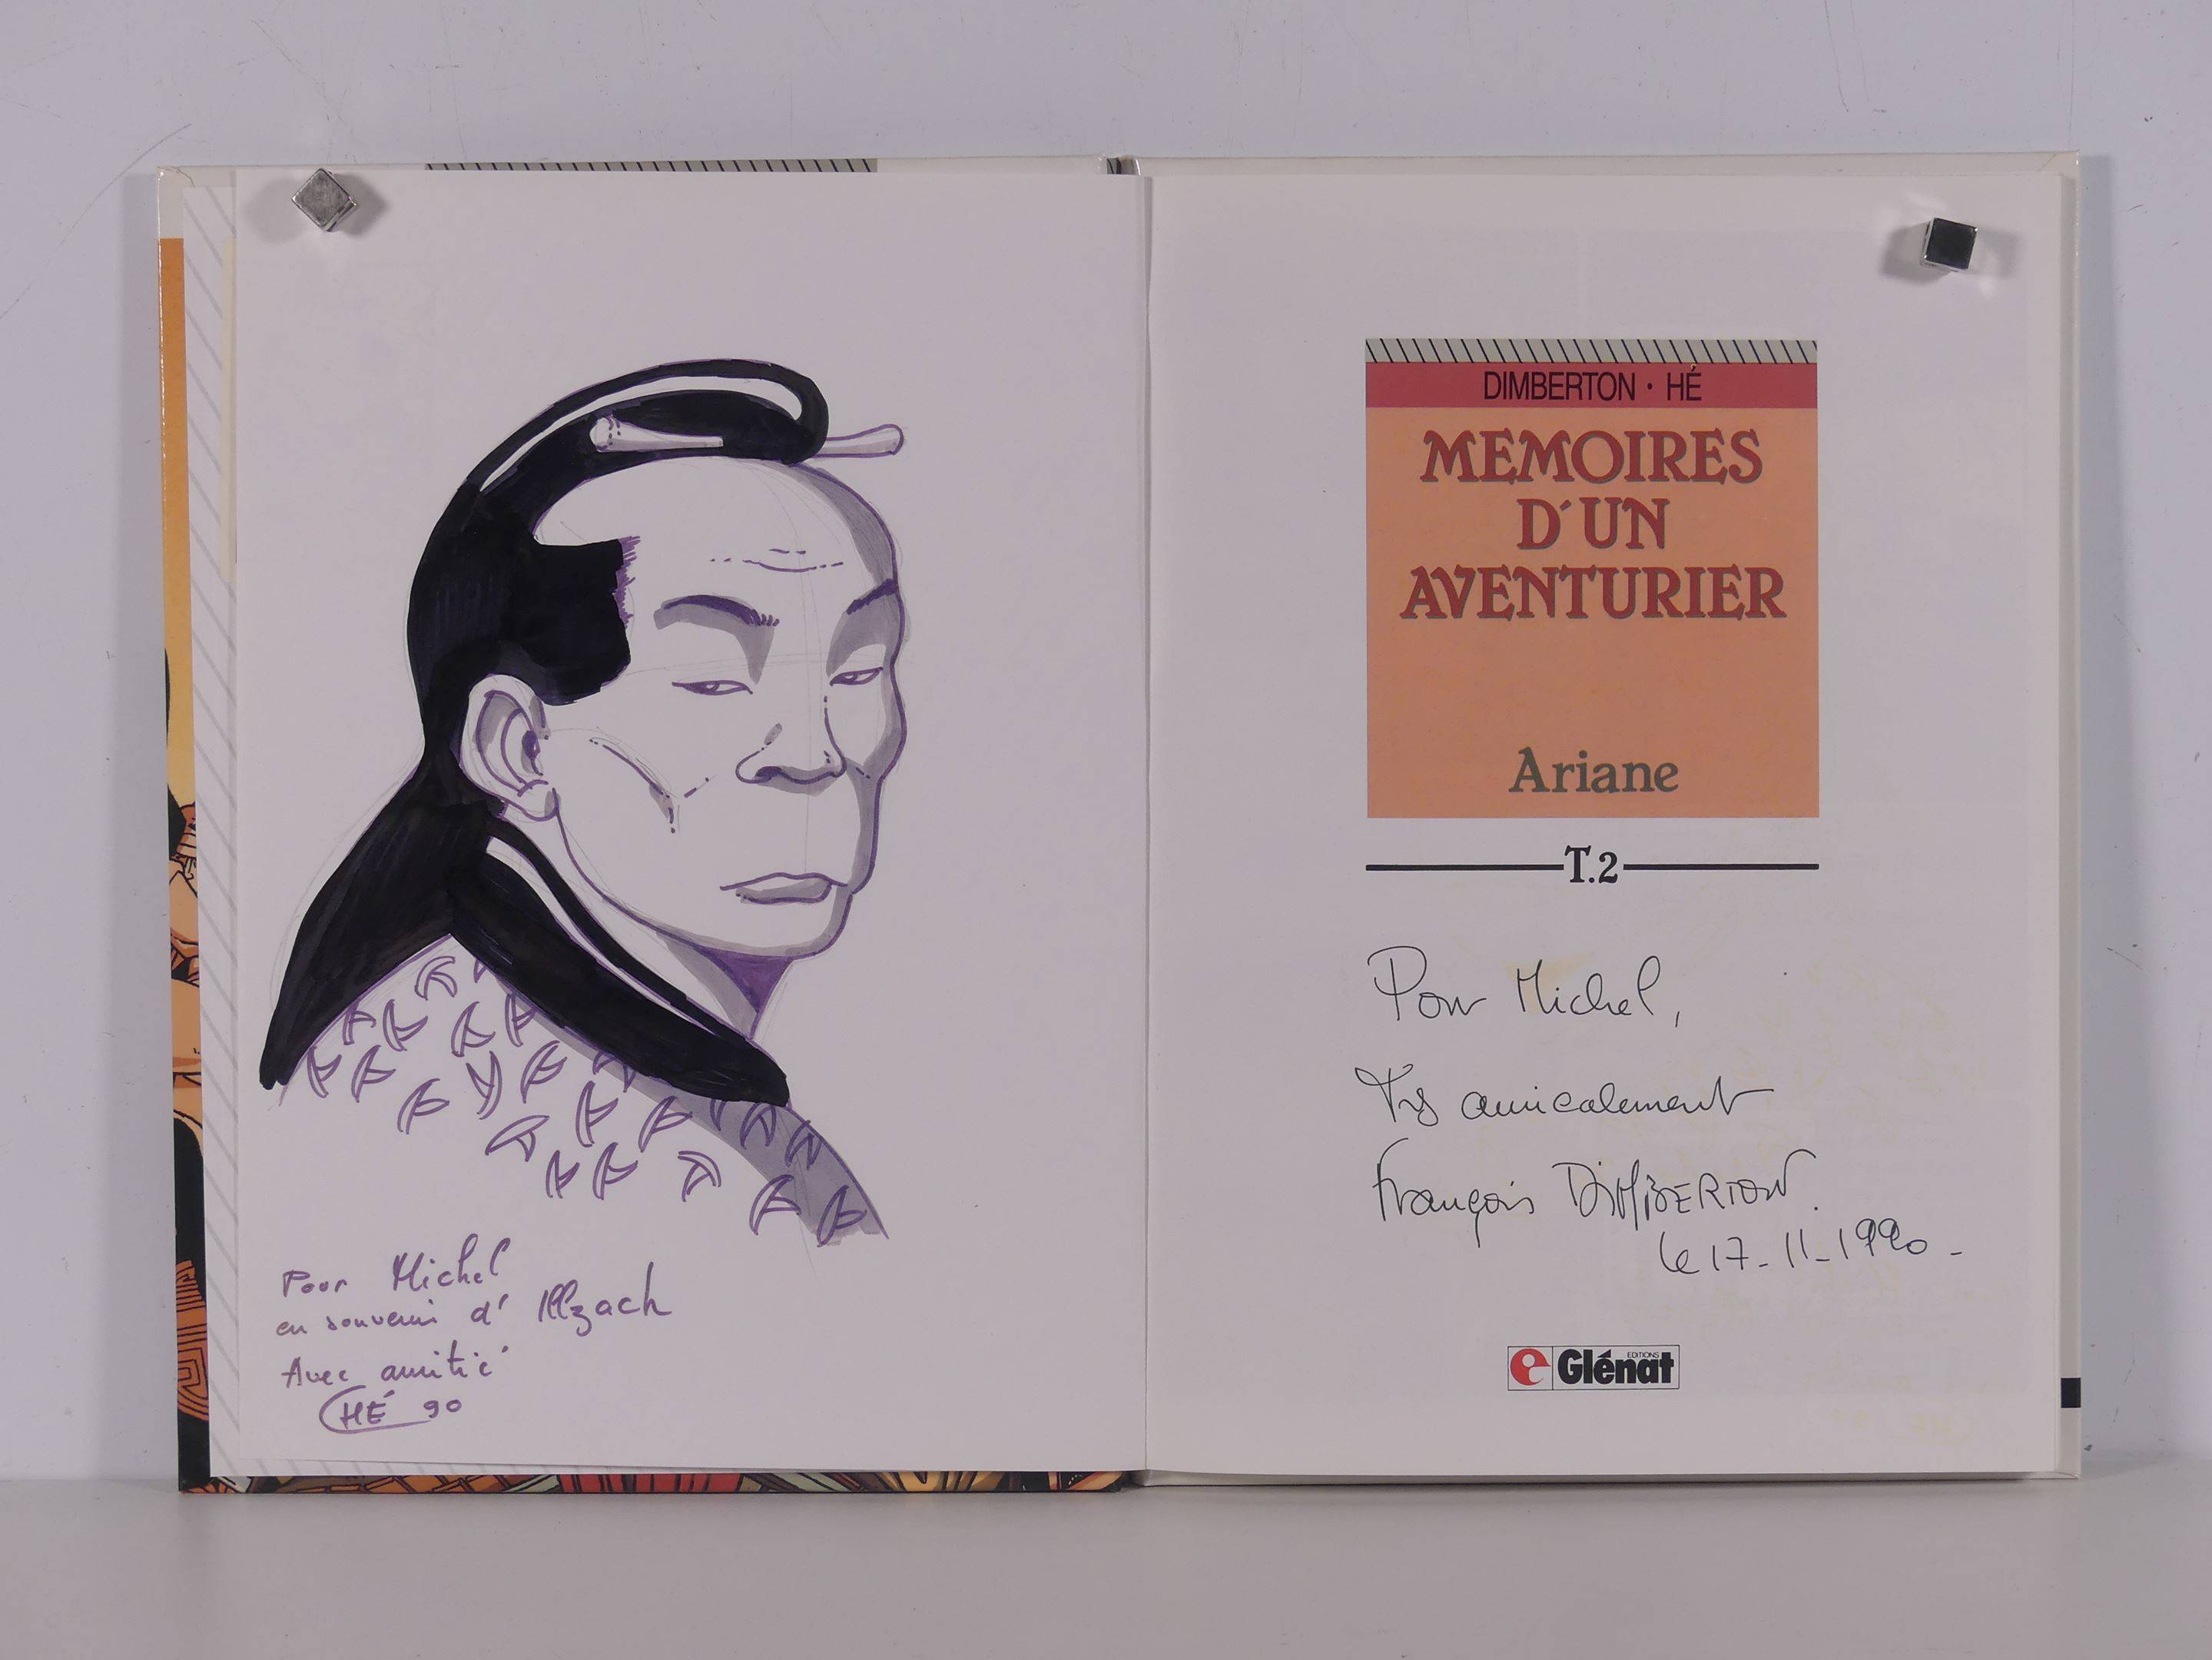 Pour Michel
en souvenir d'Illzach
Avec amitié
HÉ 90
DIMBERTON · HÉ
MEMOIRES
D'UN
AVENTURIER
Ariane
T.2
Pour Michel,
Très amicalement
François DIMBERTON.
le 17-11-1990-
EDITIONS
Glénat